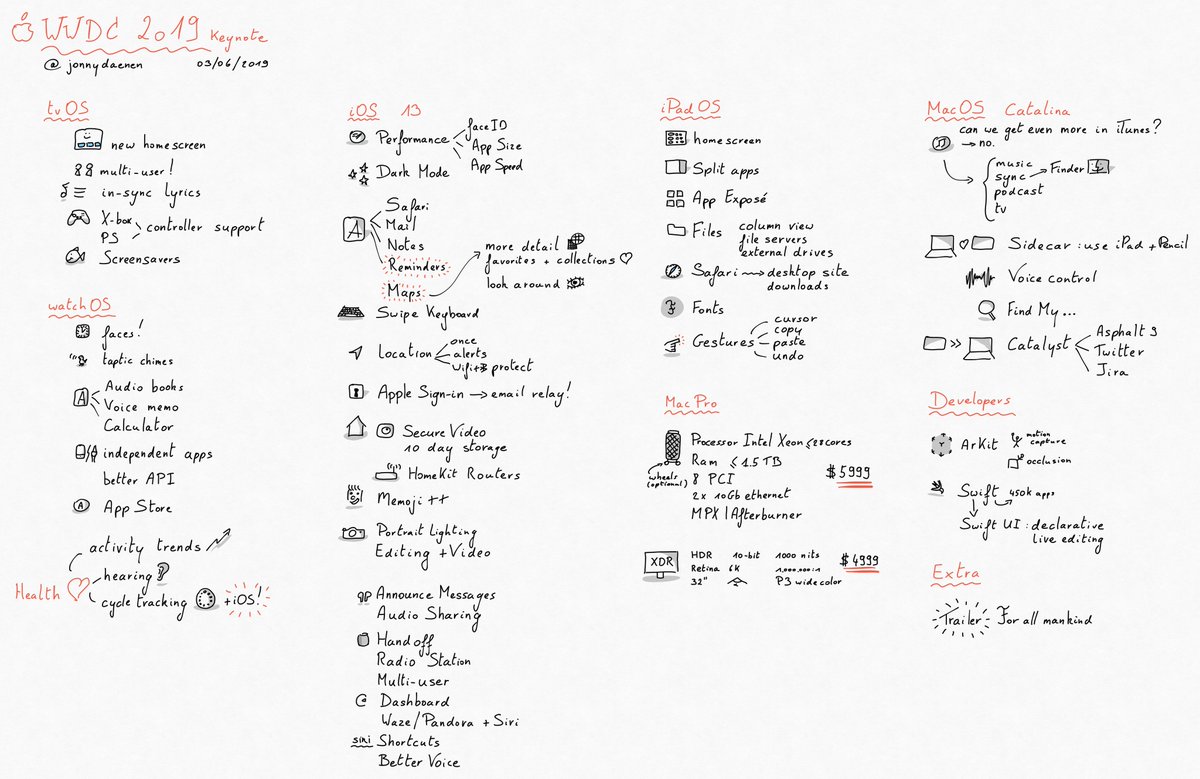 WWDC 2019 Keynote
@jonnydaenen 03/06/2019
tvOS
new homescreen
multi-user!
in-sync lyrics
X-box
PS
controller support
Screensavers
watchOS
faces!
taptic chimes
Audio books
Voice memo
Calculator
independent apps
better API
App Store
Health
activity trends
hearing
cycle tracking
+iOS!
iOS 13
Performance
faceID
App Size
App Speed
Dark Mode
A
Safari
Mail
Notes
Reminders
Maps
more detail
favorites + collections
look around
Swipe Keyboard
Location
once
alerts
protect
Apple Sign-in → email relay!
Secure Video
10 day storage
HomeKit Routers
Memoji ++
Portrait Lighting
Editing + Video
Announce Messages
Audio Sharing
Handoff
Radio Station
Multi-user
Dashboard
Waze/Pandora + Siri
siri Shortcuts
Better Voice
iPadOS
homescreen
Split apps
App Exposé
Files
column view
file servers
external drives
Safari
desktop site
downloads
Fonts
Gestures
cursor
copy
paste
undo
Mac Pro
Processor Intel Xeon ≤28cores
Ram ≤1.5 TB
8 PCI
2x 10Gb ethernet
MPX | Afterburner
wheels
(optional)
$5999
XDR
HDR 10-bit 1000 nits
Retina 6K 1.000.000:1
32" P3 wide color
$4999
MacOS Catalina
can we get even more in iTunes?
→ no.
music
sync → Finder
podcast
tv
Sidecar : use iPad + Pencil
Voice control
Find My...
Catalyst
Asphalt 9
Twitter
Jira
Developers
ArKit
motion
capture
occlusion
Swift 450k apps
Swift UI : declarative
live editing
Extra
Trailer - For all mankind